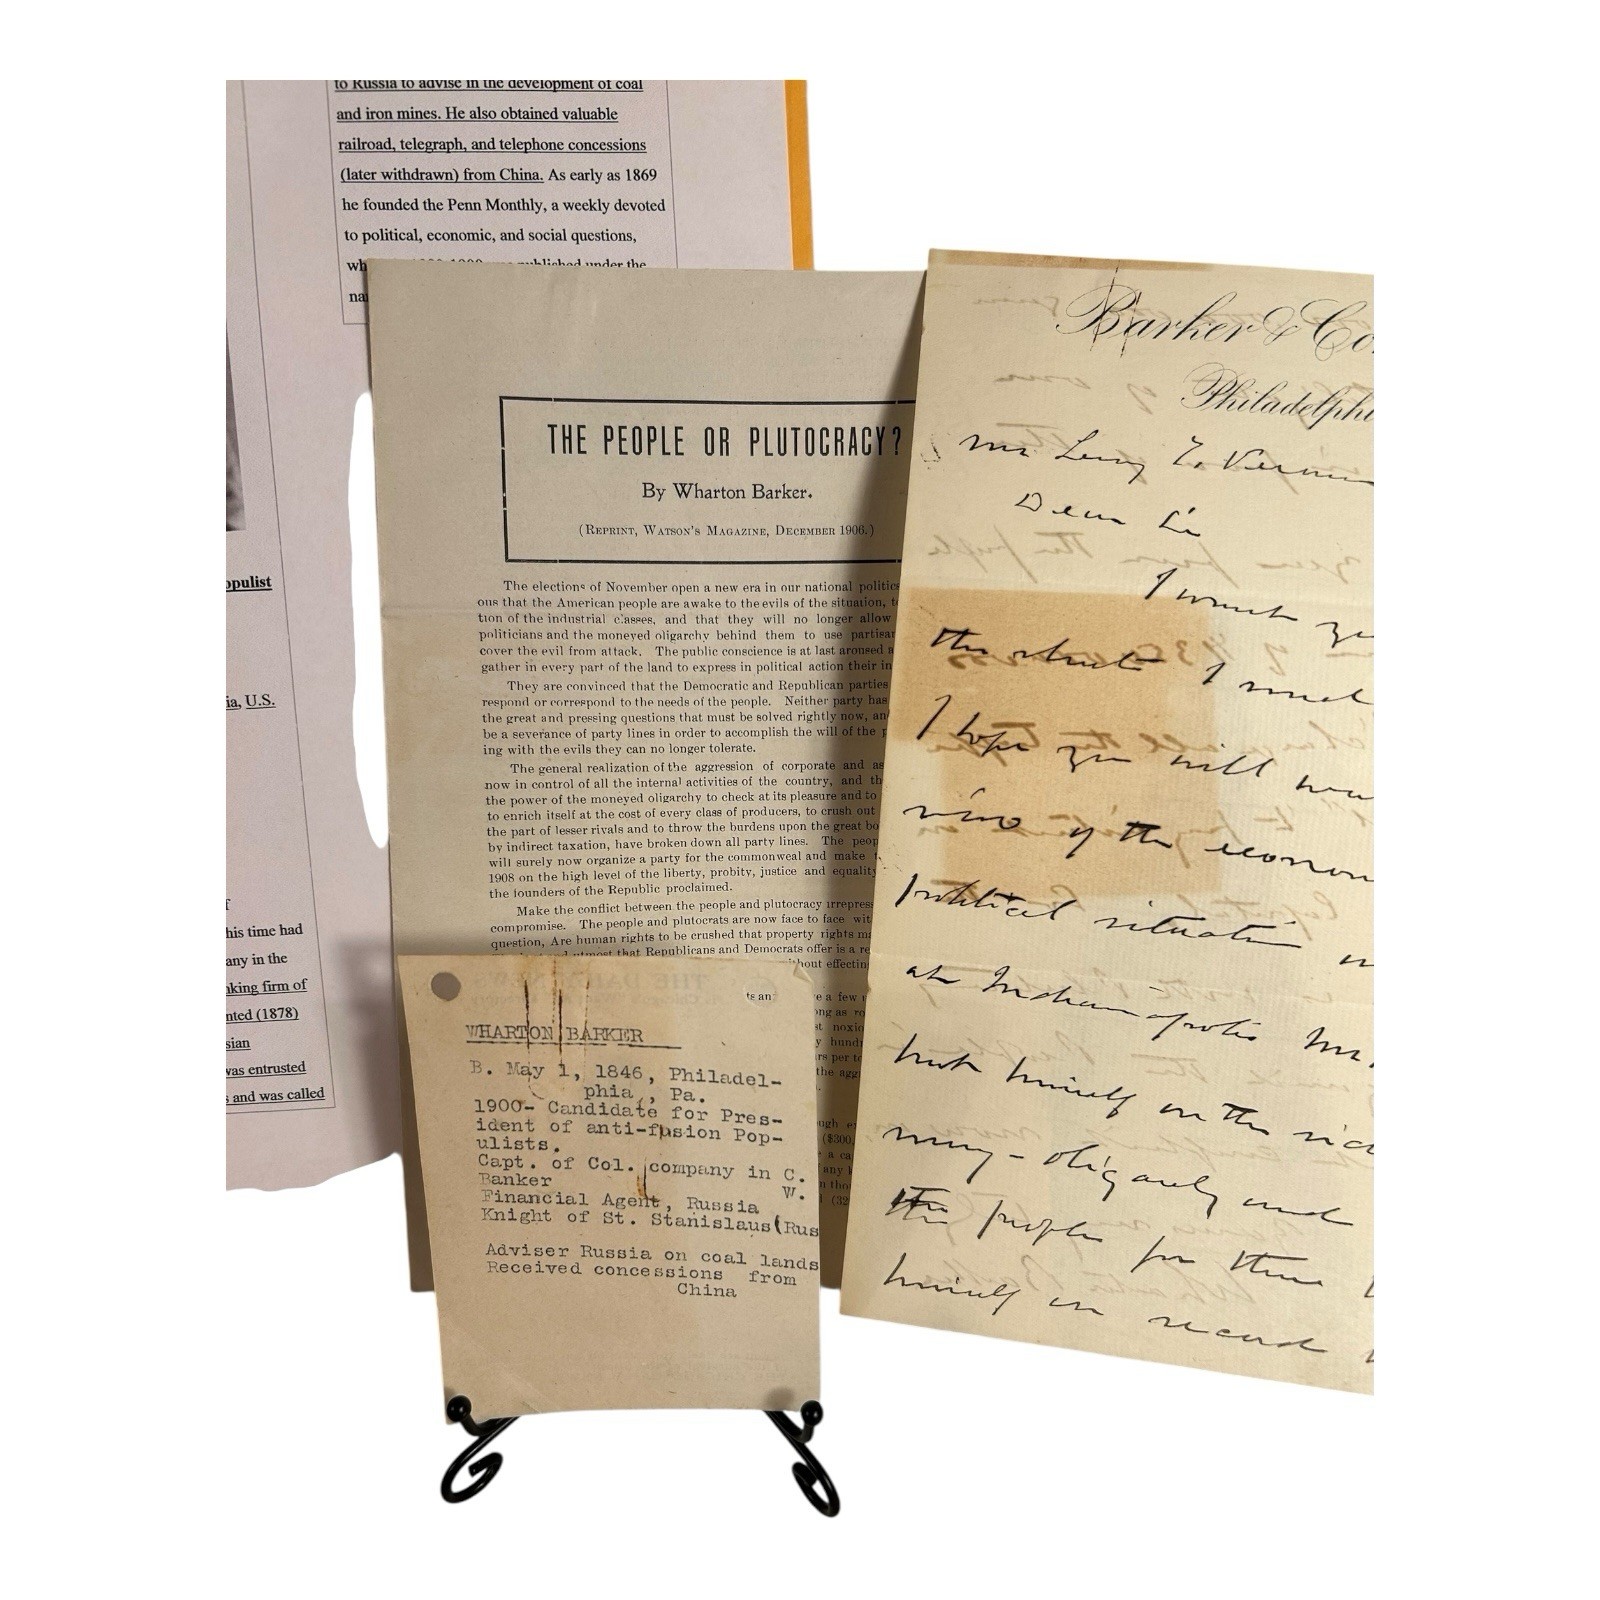 to Russia to advise in the development of coal
and iron mines. He also obtained valuable
railroad, telegraph, and telephone concessions
(later withdrawn) from China. As early as 1869
he founded the Penn Monthly, a weekly devoted
to political, economic, and social questions,
published under the
opulist
ia, U.S.
f
his time had
any in the
nking firm of
nted (1878)
sian
was entrusted
s and was called
THE PEOPLE OR PLUTOCRACY?
By Wharton Barker.
(REPRINT, WATSON'S MAGAZINE, DECEMBER 1906.)
The elections of November open a new era in our national politics
ous that the American people are awake to the evils of the situation, t
tion of the industrial classes, and that they will no longer allow
politicians and the moneyed oligarchy behind them to use partisan
cover the evil from attack. The public conscience is at last aroused a
gather in every part of the land to express in political action their in
They are convinced that the Democratic and Republican parties
respond or correspond to the needs of the people. Neither party has
the great and pressing questions that must be solved rightly now, an
be a severance of party lines in order to accomplish the will of the p
ing with the evils they can no longer tolerate.
The general realization of the aggression of corporate and as
now in control of all the internal activities of the country, and th
the power of the moneyed oligarchy to check at its pleasure and to
to enrich itself at the cost of every class of producers, to crush out
the part of lesser rivals and to throw the burdens upon the great bo
by indirect taxation, have broken down all party lines. The peop
will surely now organize a party for the commonweal and make t
1908 on the high level of the liberty, probity, justice and equality
the founders of the Republic proclaimed.
Make the conflict between the people and plutocracy irrepress
compromise. The people and plutocrats are now face to face wit
question, Are human rights to be crushed that property rights ma
utmost that Republicans and Democrats offer is a re
without effecting
ts an
e a few
ong as ro
st noxio
y hundr
rs per to
the agg
ugh e
($300,
a ca
any
n tho
(32
WHARTON BARKER
B. May 1, 1846, Philadel-
phia, Pa.
1900- Candidate for Pres-
ident of anti-fusion Pop-
ulists.
Capt. of Col. company in C.
W.
Banker
Financial Agent, Russia
Knight of St. Stanislaus(Rus
Adviser Russia on coal lands
Received concessions from
China
Barker & Co
Philadelphi
Dear Sir
I want you
the sheet I send
I hope you will
view of the econom
political situation
at Indianapolis Mr
himself on the
oligarchy and
the people for
himself on record